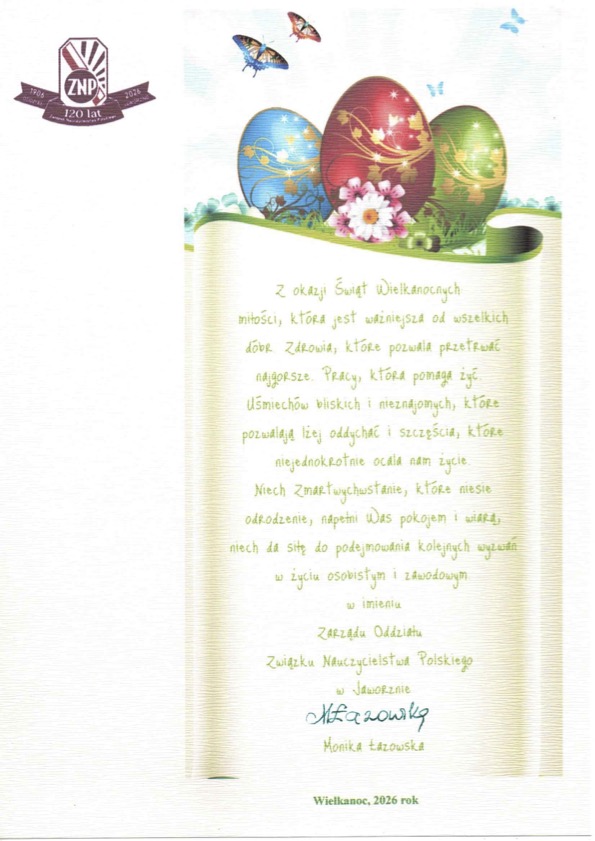 ZNP
1906
2026
120 lat
Z okazji Świąt Wielkanocnych
miłości, która jest ważniejsza od wszelkich
dóbr. Zdrowia, które pozwala przetrwać
najgorsze. Pracy, która pomaga żyć.
Uśmiechów bliskich i nieznajomych, które
pozwalają lżej oddychać i szczęścia, które
niejednokrotnie ocala nam życie.
Niech Zmartwychwstanie, które niesie
odrodzenie, napełni Was pokojem i wiarą,
niech da siłę do podejmowania kolejnych wyzwań
w życiu osobistym i zawodowym
w imieniu
Zarządu Oddziału
Związku Nauczycielstwa Polskiego
w Jaworznie
MŁazowska
Monika Łazowska
Wielkanoc, 2026 rok